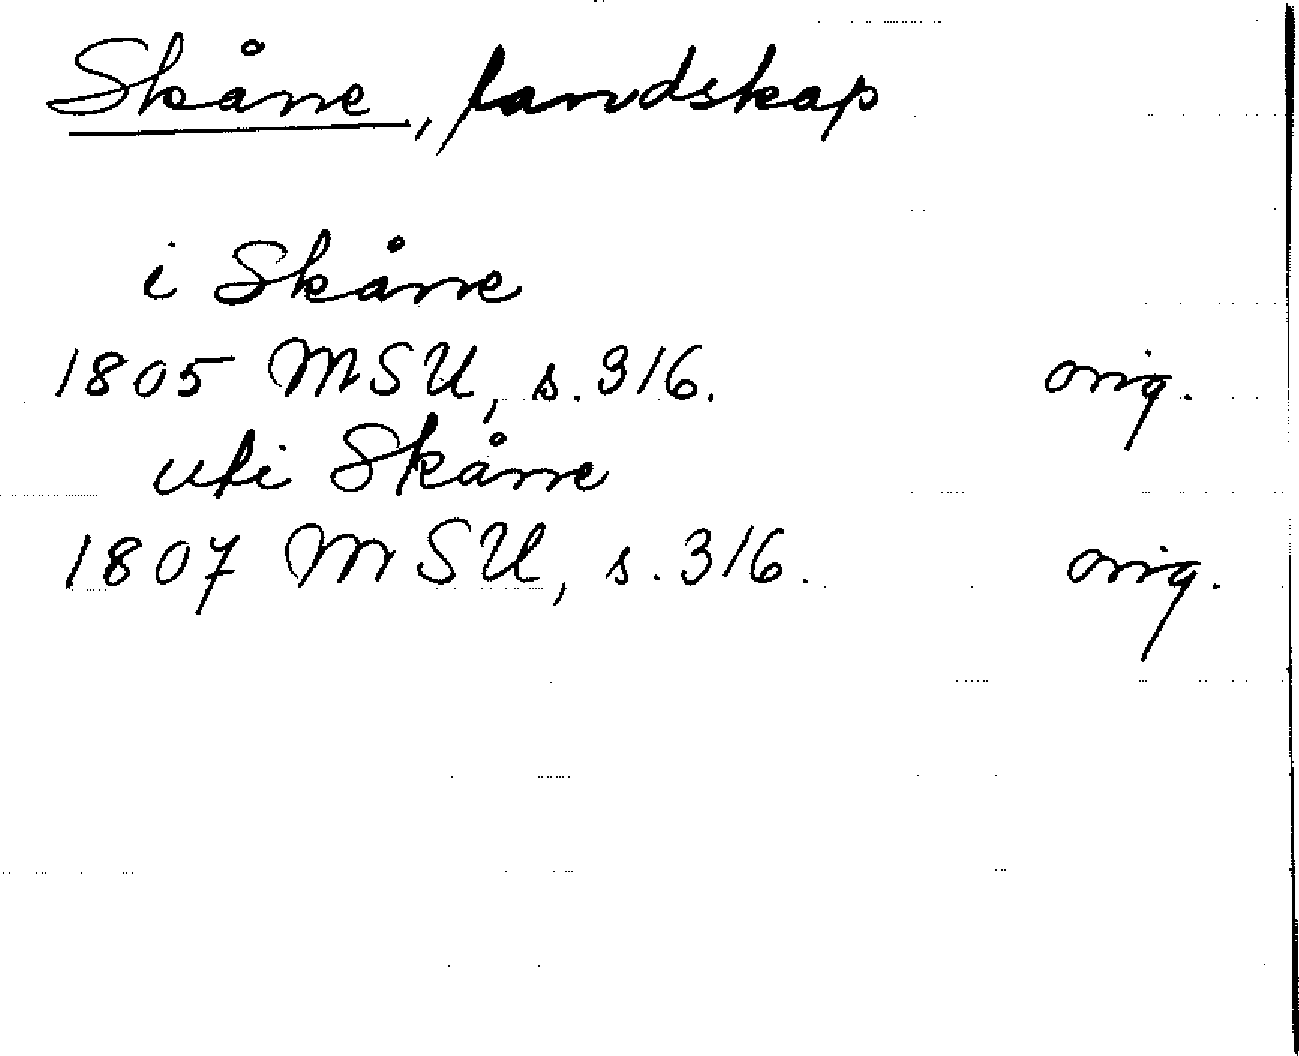 Skåne, landskap
i Skåne
1805 MSU, s. 316. orig.
uti Skåne
1807 MSU, s. 316. orig.